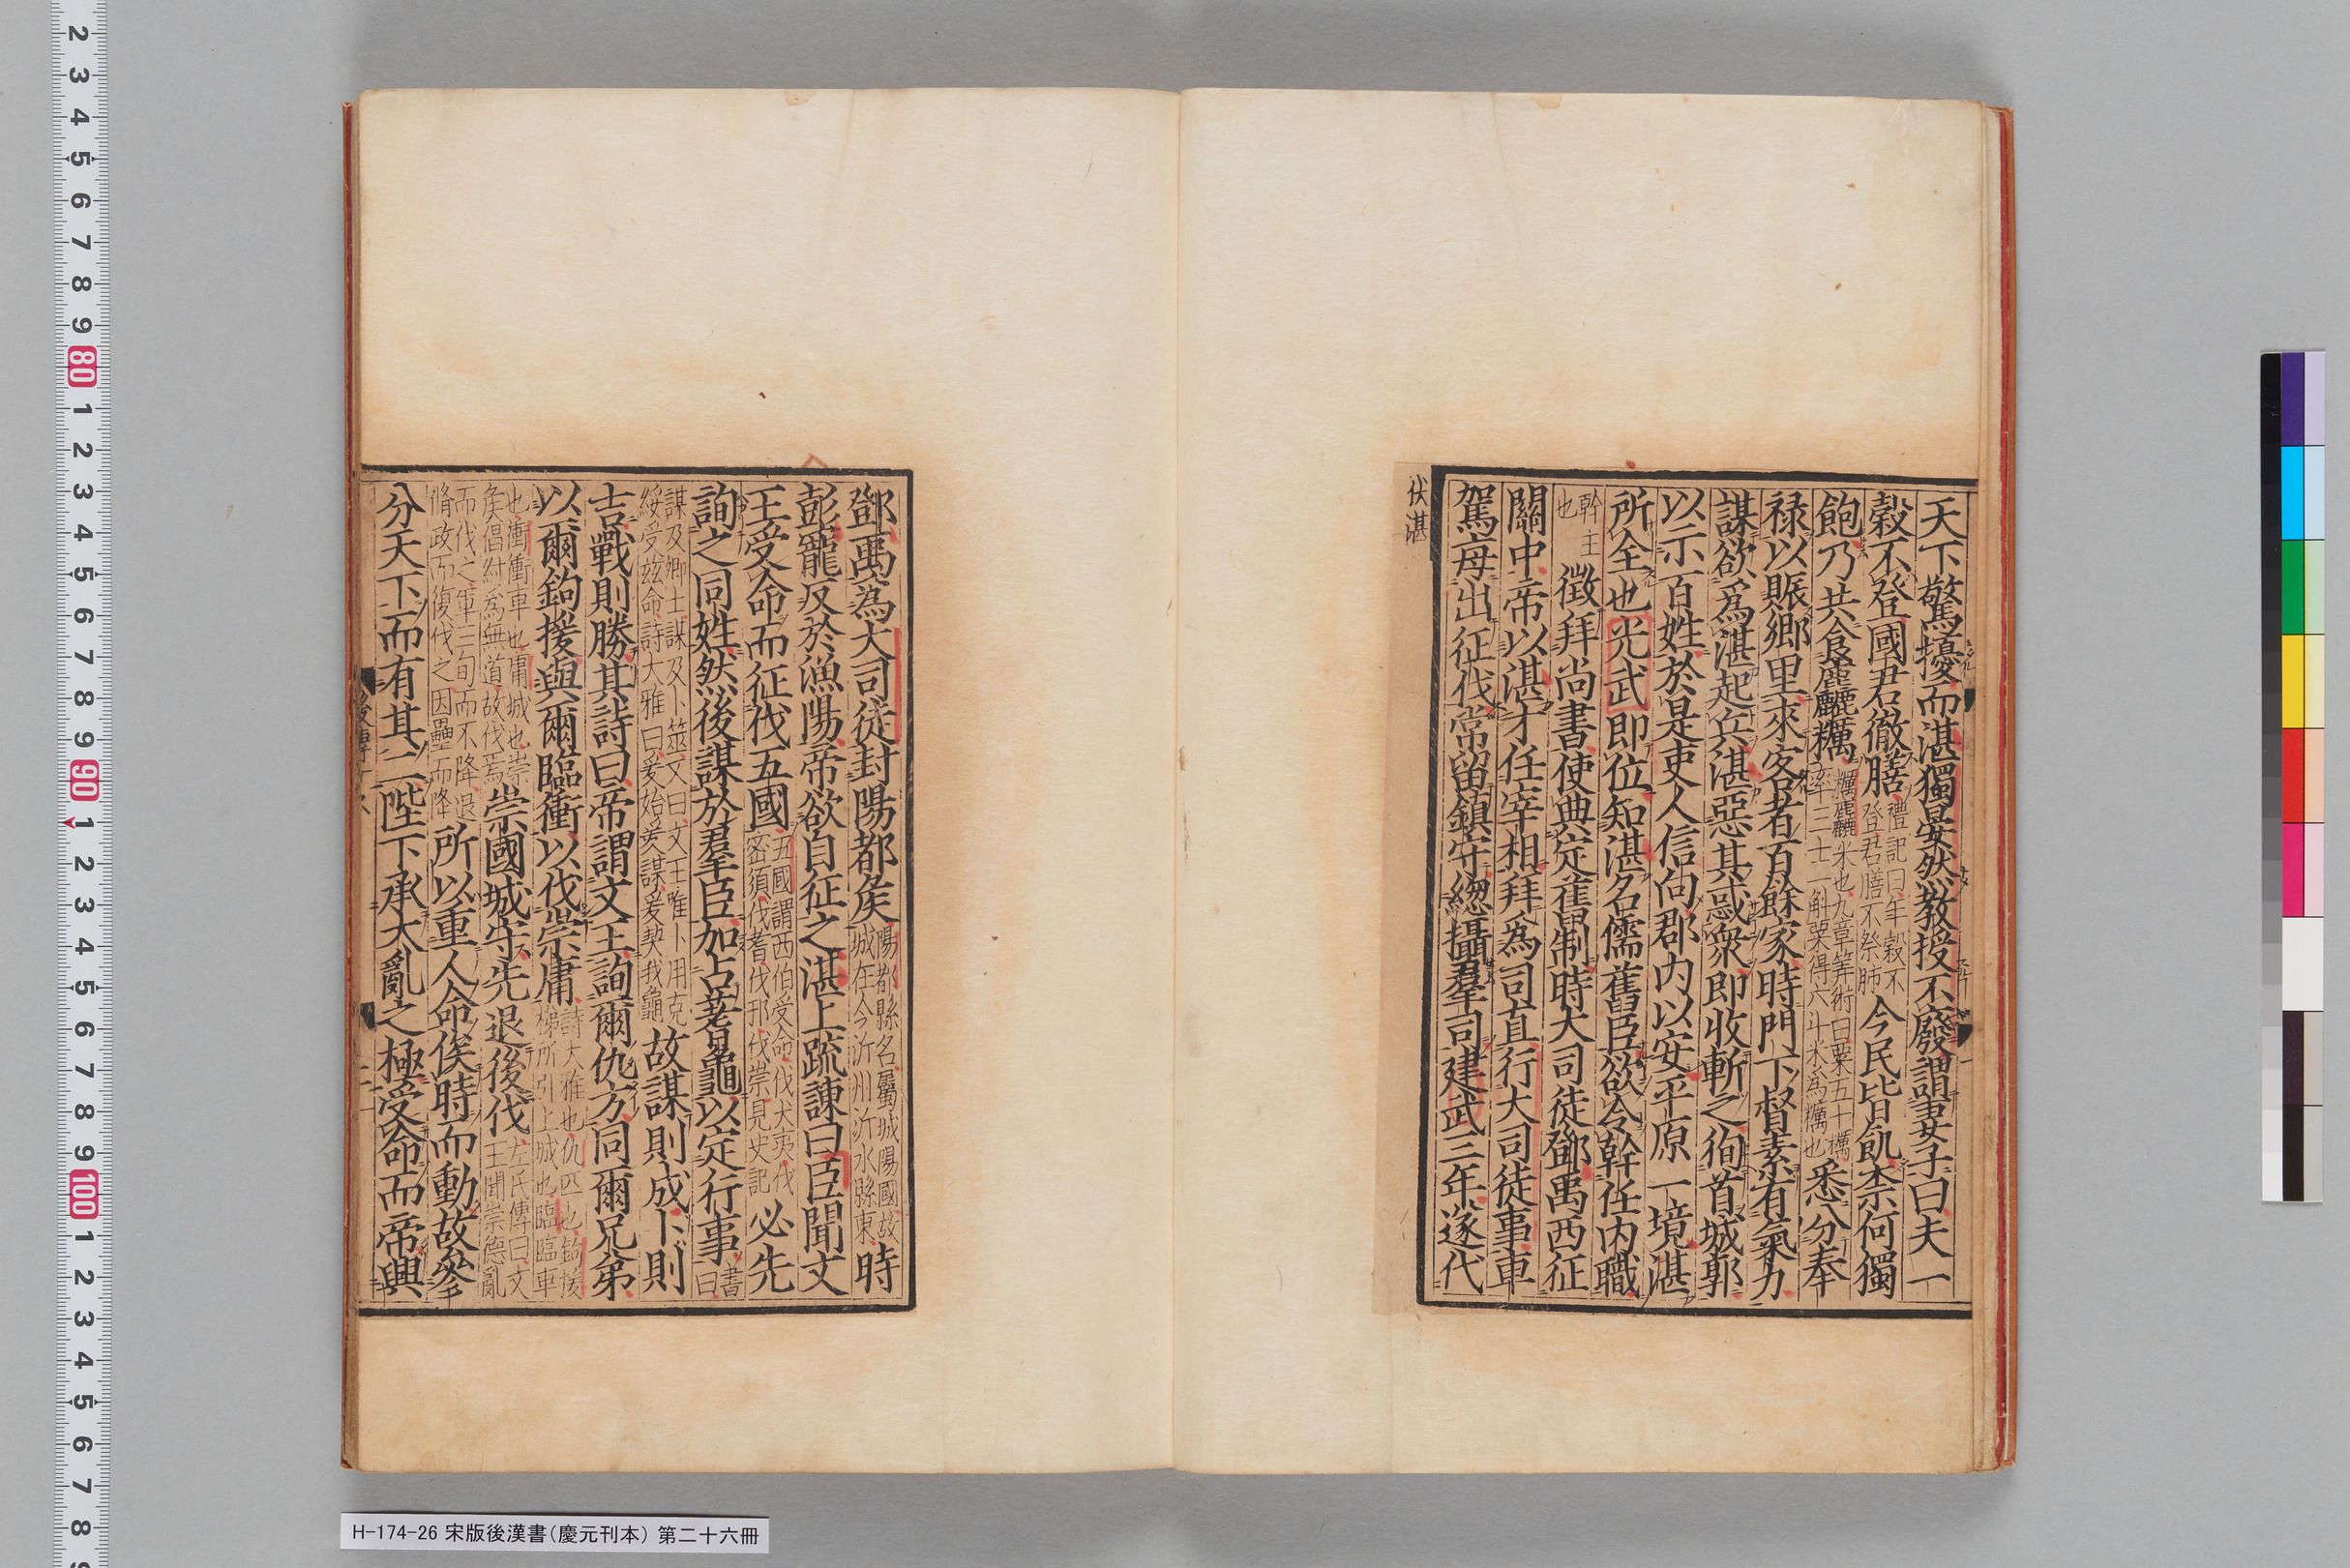 天下驚擾而湛獨晏然教授不廢謂妻子曰夫一
穀不登國君徹膳禮記曰年穀不登君膳不祭肺今民皆飢柰何獨
飽乃共食麤糲糲麤米也九章筭術曰粟五十糲率三十一斛粟得六斗米爲糲也悉分奉
禄以賑鄉里來客者百餘家時門下督素有氣力
謀欲爲湛起兵湛惡其惑衆即收斬之徇首城郭
以示百姓於是吏人信向郡内以安平原一境湛
所全也光武即位知湛名儒舊臣欲令幹任内職
幹主也徵拜尚書使典定舊制時大司徒鄧禹西征
關中帝以湛才任宰相拜爲司直行大司徒事車
駕每出征伐常留鎮守緫攝羣司建武三年遂代
伏湛
鄧禹爲大司徒封陽都矦陽都縣名屬城陽國故城在今沂州沂水縣東時
彭寵反於漁陽帝欲自征之湛上疏諫曰臣聞文
王受命而征伐五國五國謂西伯受命伐犬夷伐密須伐耆伐邘伐崇見史記必先
詢之同姓然後謀於羣臣加占蓍龜以定行事書曰
謀及卿士謀及卜筮又曰文王唯卜用克綏受兹命詩大雅曰爰始爰謀爰契我龜故謀則成卜則
吉戰則勝其詩曰帝謂文王詢爾仇方同爾兄弟
以爾鉤援與爾臨衝以伐崇庸詩大雅也仇匹也鉤援梯所引上城也臨臨車
也衝衝車也庸城也崇矦倡紂爲無道故伐焉崇國城守先退後伐左氏傳曰文王聞崇德亂
而伐之軍三旬而不降退脩政而復伐之因壘而降所以重人命俟時而動故參
分天下而有其二陛下承大亂之極受命而帝興
H-174-26 宋版後漢書(慶元刊本) 第二十六冊